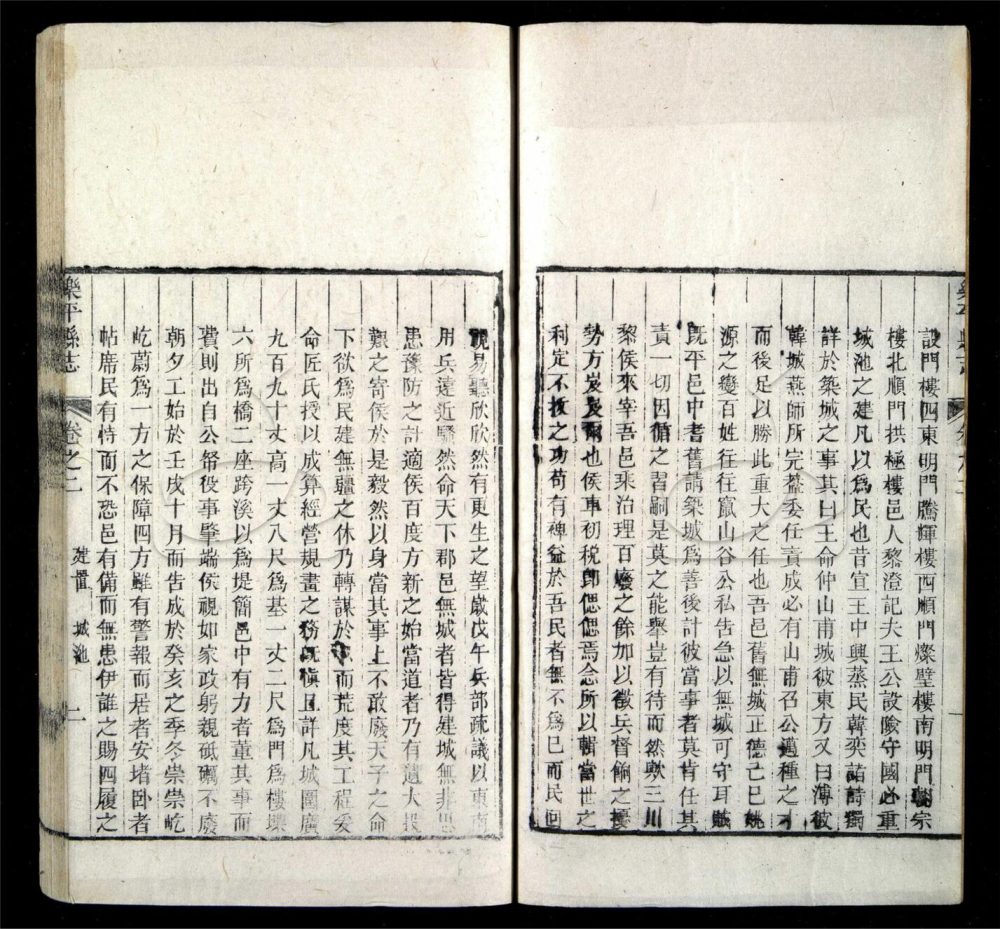 設門樓四東明門騰輝樓西順門燦壁樓南明門聯宗
樓北順門拱極樓邑人黎澄記夫王公設險守國必重
城池之建凡以爲民也昔宣王中興蒸民韓奕諸詩獨
詳於築城之事其曰王命仲山甫城彼東方又曰溥彼
韓城燕師所完葢委任責成必有山甫召公邁種之才
而後足以勝此重大之任也吾邑舊無城正德己巳姚
源之變百姓往往竄山谷公私告急以無城可守耳賊
旣平邑中耆舊請築城爲善後計彼當事者莫肯任其
責一切因循之習嗣是莫之能舉豈有待而然歟三川
黎侯來宰吾邑乘治理百廢之餘加以徵兵督餉之擾
勢方岌岌爾也侯車初稅卽偲偲焉念所以輯當世之
利定不拔之功苟有裨益於吾民者無不爲已而民囘
視易聽欣欣然有更生之望歲戊午兵部疏議以東南
用兵遠近騷然命天下郡邑無城者皆得建城無非思
患豫防之計適侯百度方新之始當道者乃有遺大投
艱之寄侯於是毅然以身當其事上不敢廢天子之命
下欲爲民建無疆之休乃轉謀於而荒度其工程爰
命匠氏授以成算經營規畫之務旣愼且詳凡城圍廣
九百九十丈高一丈八尺爲基一丈二尺爲門爲樓壞
六所爲橋二座跨溪以爲堤簡邑中有力者董其事而
費則出自公帑役事肇端侯視如家政躬親砥礪不廢
朝夕工始於壬戌十月而告成於癸亥之季冬崇崇屹
屹蔚爲一方之保障四方雖有警報而居者安堵卧者
帖席民有恃而不恐邑有備而無患伊誰之賜四履之
樂平縣志
卷之二
建置
城池
二